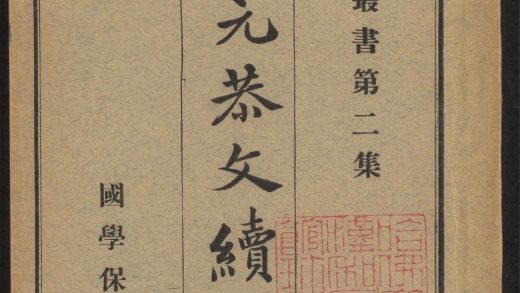 叢書第二集
元恭文續
國學保